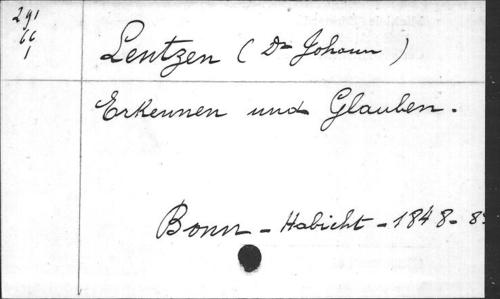 291
66
1
Lentzen (Dr Johann)
Erkennen und Glauben.
Bonn - Habicht - 1848 - 8º